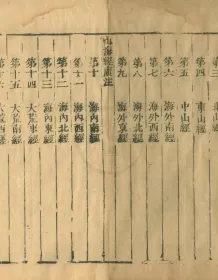 第三 北山經
第四 東山經
第五 中山經
第六 海外南經
第七 海外西經
第八 海外北經
第九 海外東經
山海經廣注
第十 海內南經
第十一 海內西經
第十二 海內北經
第十三 海內東經
第十四 大荒東經
第十五 大荒南經
第十六 大荒西經